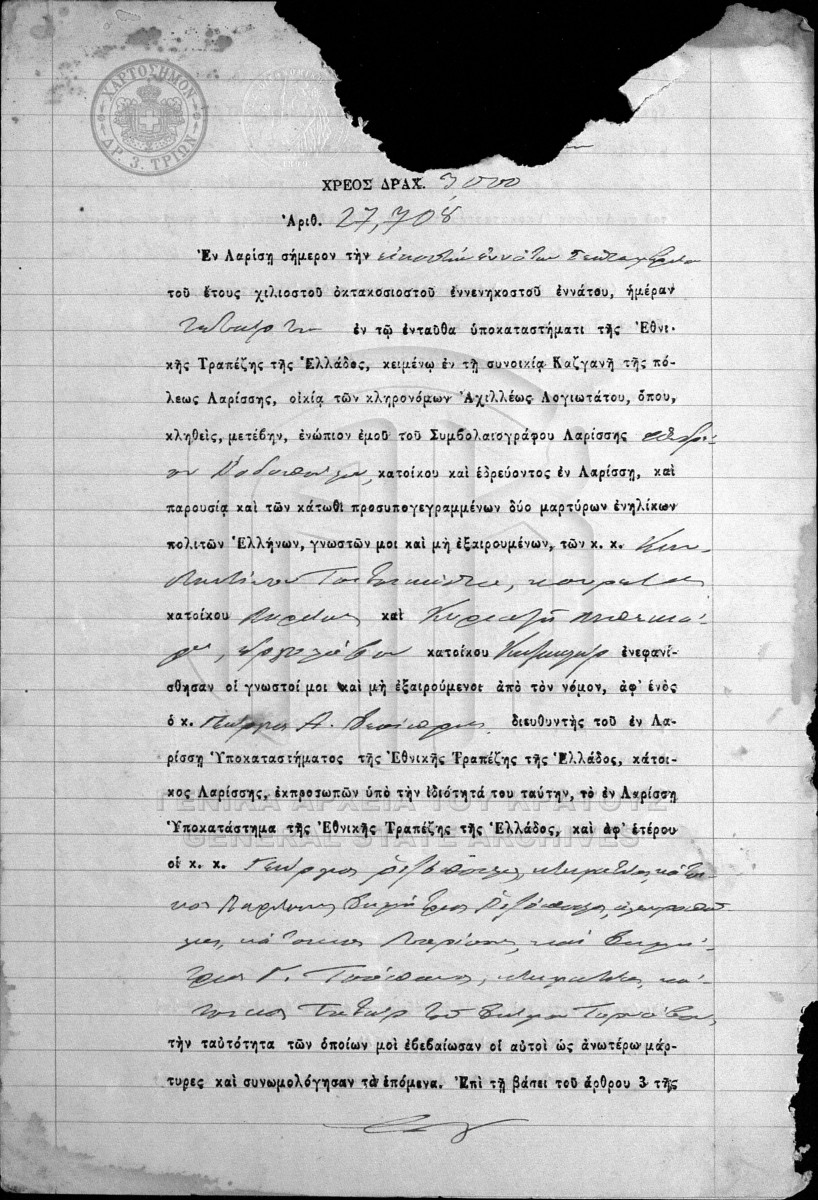 ΧΑΡΤΟΣΗΜΟΝ
ΔΡ. 3. ΤΡΙΩΝ
ΧΡΕΟΣ ΔΡΑΧ. 3000
Ἀριθ. 27,708
Ἐν Λαρίσῃ σήμερον τὴν εἰκοστὴν ἐννάτην Σεπτεμβρίου
τοῦ ἔτους χιλιοστοῦ ὀκτακοσιοστοῦ ἐννενηκοστοῦ ἐννάτου, ἡμέραν
Τετάρτην ἐν τῷ ἐνταῦθα ὑποκαταστήματι τῆς Ἐθνι-
κῆς Τραπέζης τῆς Ἑλλάδος, κειμένῳ ἐν τῇ συνοικίᾳ Καζγανῆ τῆς πό-
λεως Λαρίσσης, οἰκίᾳ τῶν κληρονόμων Ἀχιλλέως Λογιωτάτου, ὅπου,
κληθεὶς, μετέβην, ἐνώπιον ἐμοῦ τοῦ Συμβολαιογράφου Λαρίσσης
κατοίκου καὶ ἑδρεύοντος ἐν Λαρίσσῃ, καὶ
παρουσίᾳ καὶ τῶν κάτωθι προσυπογεγραμμένων δύο μαρτύρων ἐνηλίκων
πολιτῶν Ἑλλήνων, γνωστῶν μοι καὶ μὴ ἐξαιρουμένων, τῶν κ. κ. Κων-
κατοίκου Λαρίσσης καὶ
κατοίκου ἐνεφανί-
σθησαν οἱ γνωστοί μοι καὶ μὴ ἐξαιρούμενοι ἀπὸ τὸν νόμον, ἀφ' ἑνὸς
ὁ κ. Γεώργιος Α. διευθυντὴς τοῦ ἐν Λα-
ρίσσῃ Ὑποκαταστήματος τῆς Ἐθνικῆς Τραπέζης τῆς Ἑλλάδος, κάτοι-
κος Λαρίσσης, ἐκπροσωπῶν ὑπὸ τὴν ἰδιότητά του ταύτην, τὸ ἐν Λαρίσσῃ
ΓΕΝΙΚΑ ΑΡΧΕΙΑ ΤΟΥ ΚΡΑΤΟΥΣ
Ὑποκατάστημα τῆς Ἐθνικῆς Τραπέζης τῆς Ἑλλάδος, καὶ ἀφ' ἑτέρου
GENERAL STATE ARCHIVES
οἱ κ. κ. Γεώργιος κτηματίας, κάτοι-
κος Λαρίσσης Δημήτριος
κάτοικος Λαρίσσης, καὶ Δημή-
τριος Γ. κτηματίας, κά-
τοικος Τατὰρ τοῦ Δήμου Τυρνάβου,
τὴν ταὐτότητα τῶν ὁποίων μοὶ ἐβεβαίωσαν οἱ αὐτοὶ ὡς ἀνωτέρω μάρ-
τυρες καὶ συνωμολόγησαν τὰ ἑπόμενα. Ἐπὶ τῇ βάσει τοῦ ἄρθρου 3 τῆς